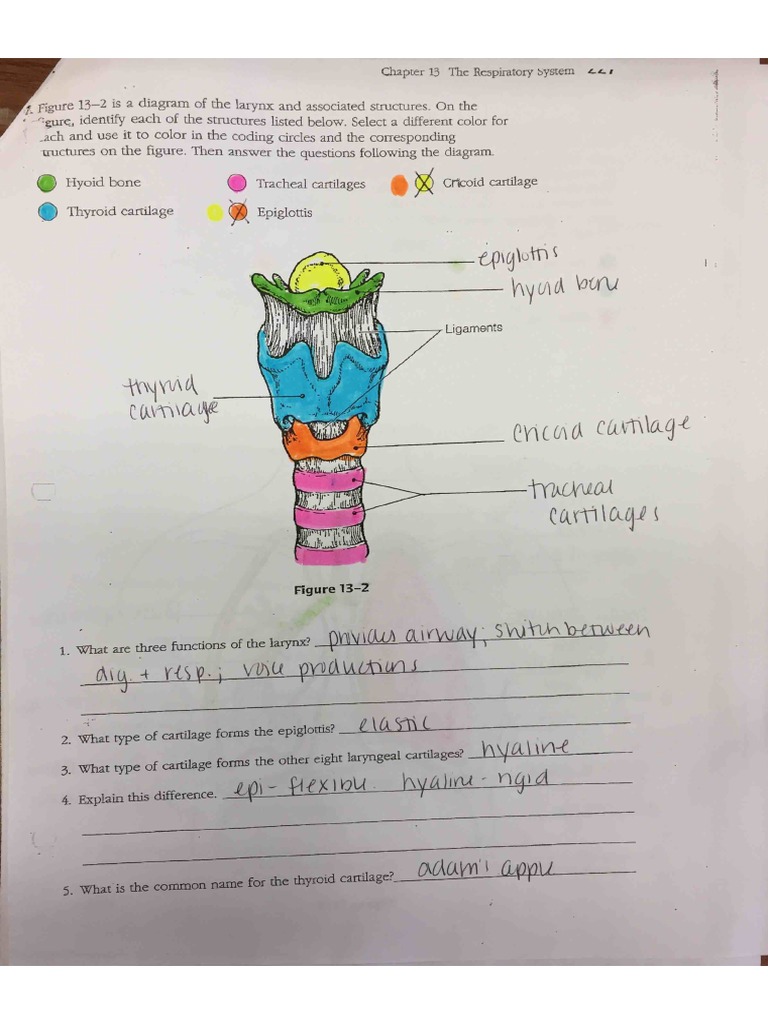 Chapter 13 The Respiratory System 221
7. Figure 13–2 is a diagram of the larynx and associated structures. On the
figure, identify each of the structures listed below. Select a different color for
each and use it to color in the coding circles and the corresponding
structures on the figure. Then answer the questions following the diagram.
Hyoid bone Tracheal cartilages Cricoid cartilage
Thyroid cartilage Epiglottis
epiglottis
hyoid bone
Ligaments
thyroid
cartilage
cricoid cartilage
tracheal
cartilages
Figure 13–2
1. What are three functions of the larynx? provides airway; switch between
dig. + resp.; voice productions
2. What type of cartilage forms the epiglottis? elastic
3. What type of cartilage forms the other eight laryngeal cartilages? hyaline
4. Explain this difference. epi - flexible. hyaline - rigid
5. What is the common name for the thyroid cartilage? adam's apple